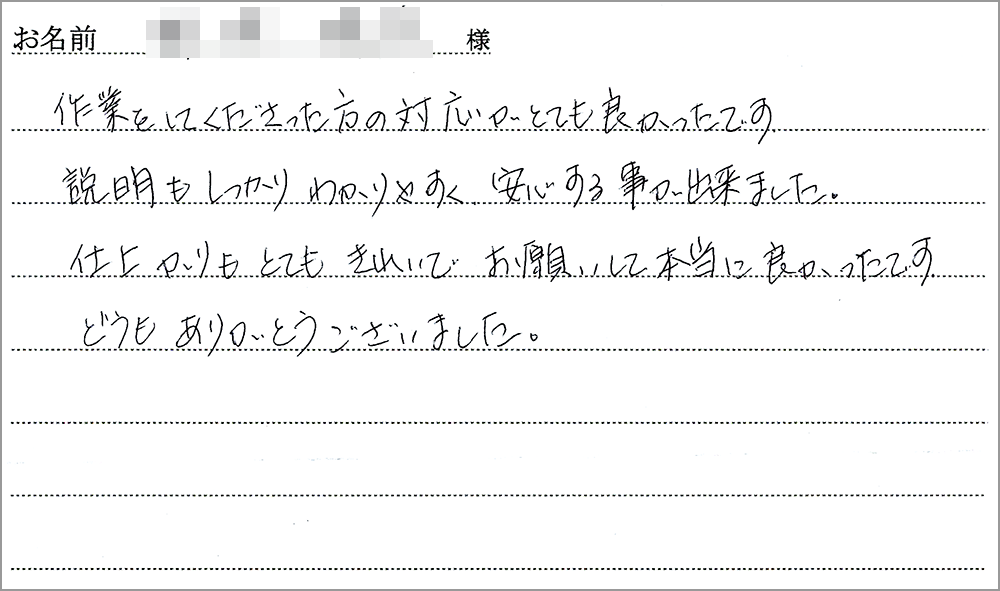 お名前 様
作業をしてくださった方の対応がとても良かったです
説明もしっかりわかりやすく、安心する事が出来ました。
仕上がりもとてもきれいで お願いして本当に良かったです
どうもありがとうございました。